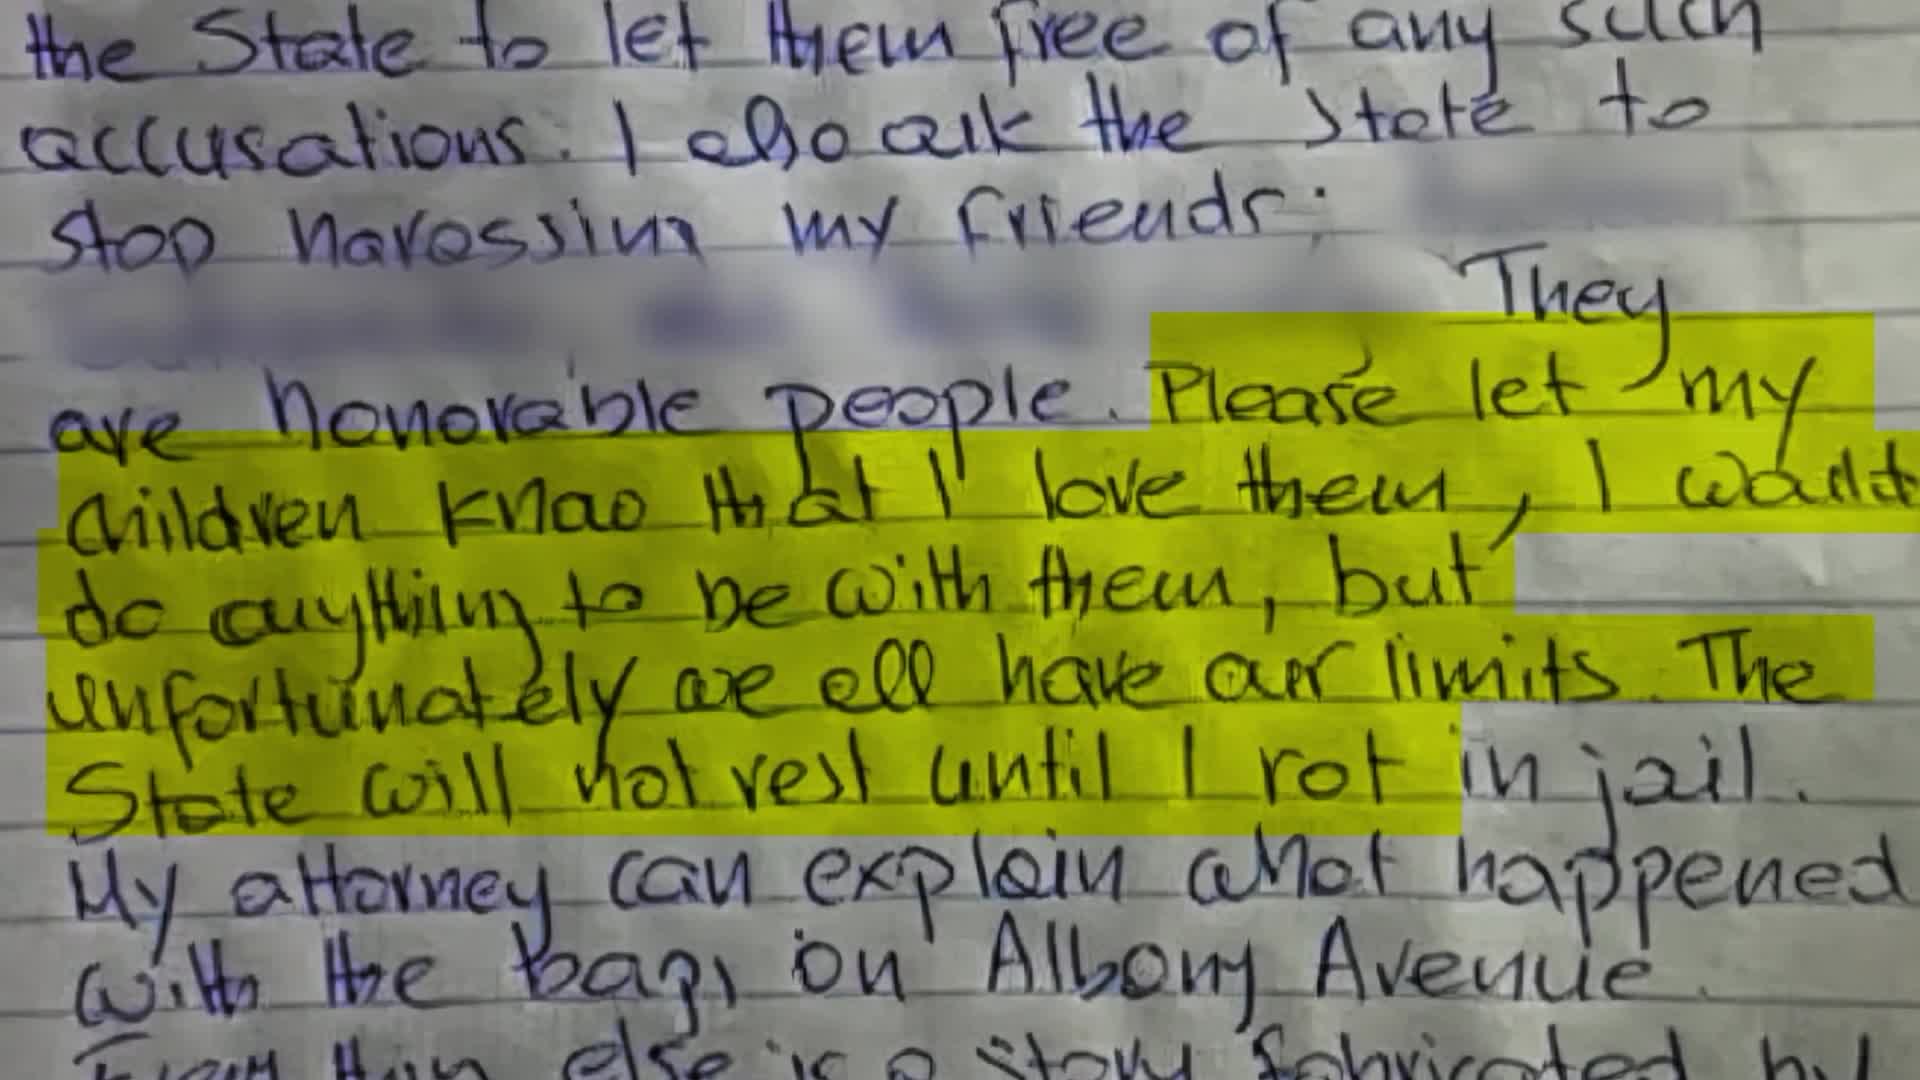 the State to let them free of any such
accusations. I also ask the State to
stop harassing my friends:
They
are honorable people. Please let my
children know that I love them, I would
do anything to be with them, but
unfortunately we all have our limits. The
State will not rest until I rot in jail.
My attorney can explain what happened
with the bags on Albany Avenue.
else is a story fabricated by